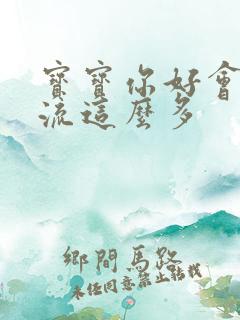 寶寶你好會
流這麼多
鄉間馬路
未經同意禁止轉載